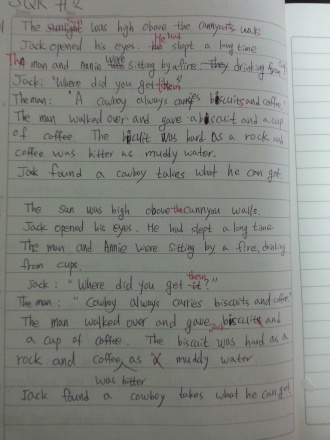 SQK #2
The sunlight was high above the cannyou's wall.
Jack opened his eyes. He had slept a long time
The man and Annie were sitting by a fire drinking from cup
Jack: "Where did you get them"
The man: "A cowboy always carries biscuits and coffee"
The man walked over and gave a biscuit and a cup
of coffee. The biscuit was hard as a rock and
coffee was bitter as muddy water.
Jack found a cowboy takes what he can get.
The sun was high above the cannyou walls.
Jack opened his eyes. He had slept a long time
The man and Annie were sitting by a fire, drinking
from cups.
Jack: "Where did you get it them?"
The man: "Cowboy always carries biscuits and coffee"
The man walked over and gave Jack biscuit and
a cup of coffee. The biscuit was hard as a
rock and coffee as muddy water.
was bitter
Jack found a cowboy takes what he can get